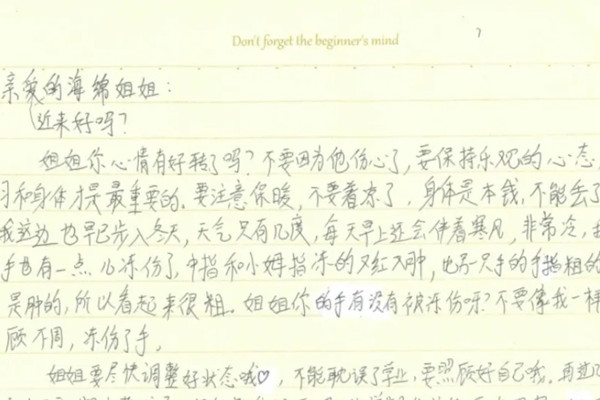 Don't forget the beginner's mind
亲爱的海绵姐姐：
近来好吗？
姐姐你心情有好转了吗？不要因为他伤心了，要保持乐观的心态，
习和身体才是最重要的。要注意保暖，不要着凉了，身体是本钱，不能丢了
我这边也早已步入冬天，天气只有几度，每天早上还会伴着寒风，非常冷，
手也有一点儿冻伤了，中指和小姆指冻的又红又肿，也不只手的手指粗的
是肿的，所以看起来很粗。姐姐你的手有没有被冻伤呀？不要像我一样
顾不周，冻伤了手。
姐姐要尽快调整好状态哦♡，不能耽误了学业，要照顾好自己哦。再过